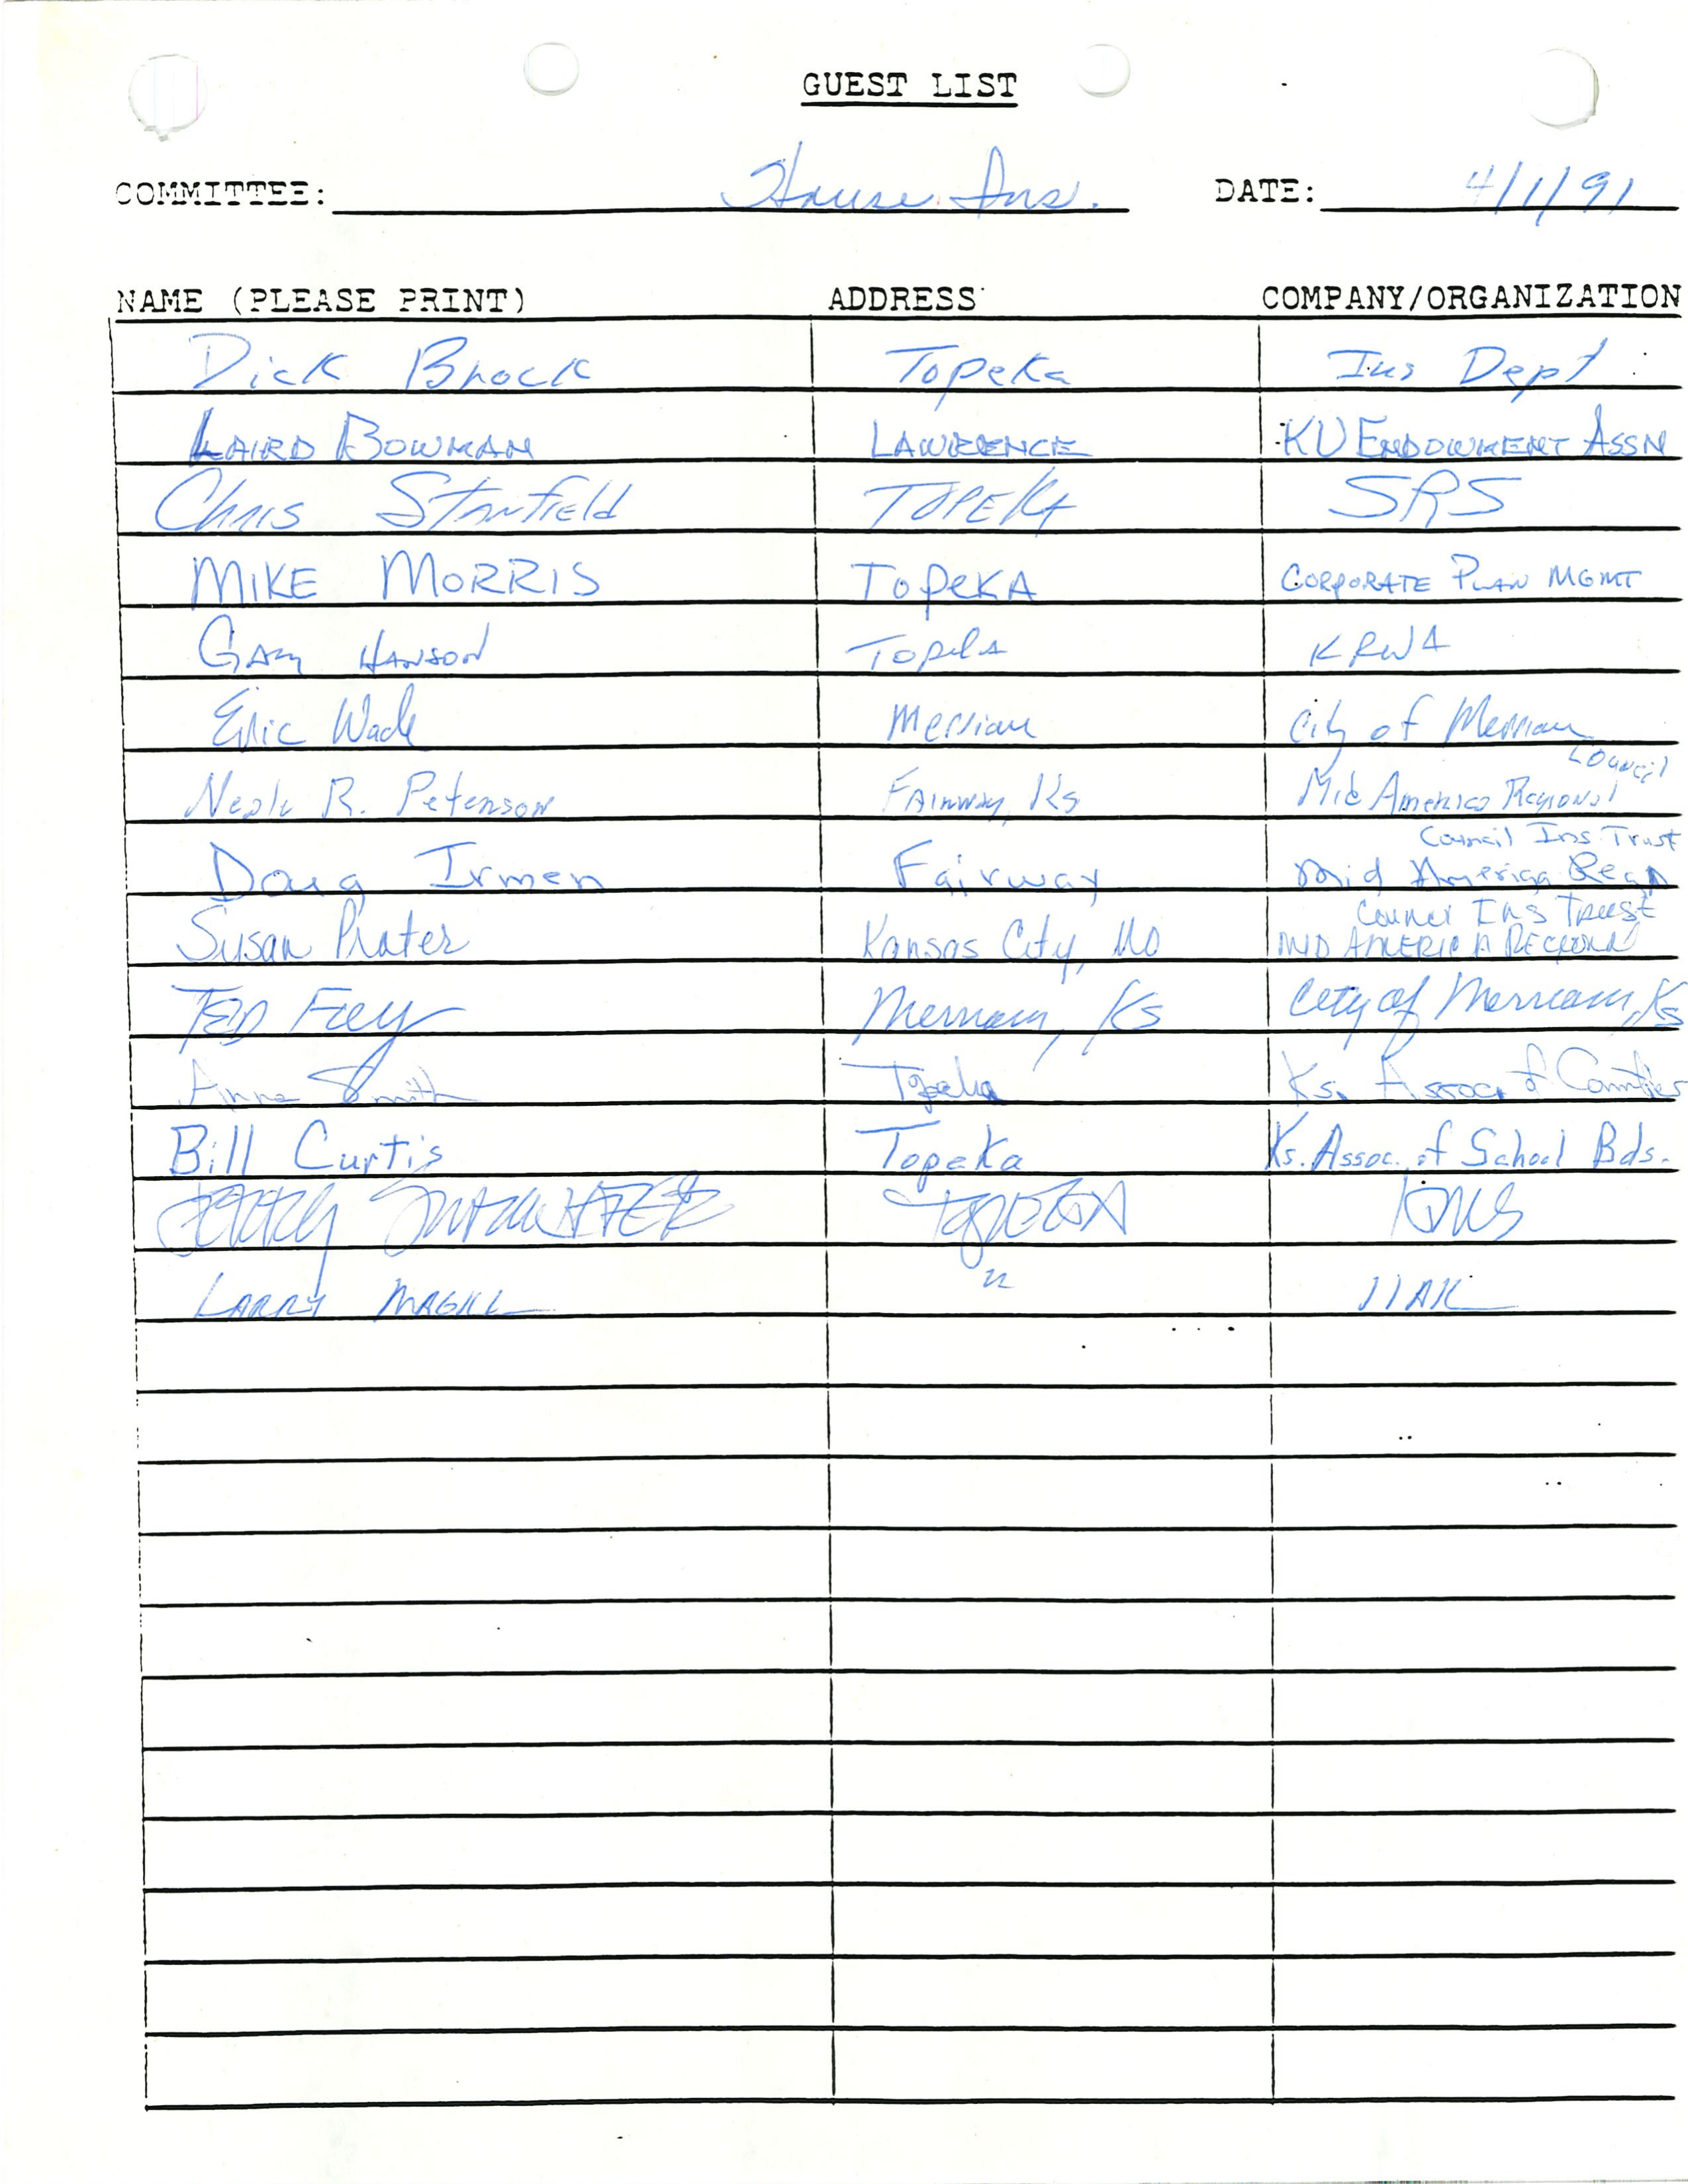 GUEST LIST
COMMITTEE: House Ins. DATE: 4/1/91
NAME (PLEASE PRINT) ADDRESS COMPANY/ORGANIZATION
Dick Brock Topeka Ins Dept
LAIRD BOWMAN LAWRENCE KU ENDOWMENT ASSN
Chris Stanfield TOPEKA SRS
MIKE MORRIS TOPEKA CORPORATE PLAN MGMT
GARY HANSON Topeka KRWA
Eric Wade Merriam City of Merriam
Council
Neale R. Peterson FAIRWAY, Ks Mid America Regional
Council Ins Trust
Doug Irmen Fairway Mid America Regn
Council INS TRUST
Susan Prater Kansas City, MO MID AMERICA REGIONAL
TED FREY Merriam, Ks City of Merriam, Ks
Anne Smith Topeka Ks. Assoc of Counties
Bill Curtis Topeka Ks. Assoc. of School Bds.
TOPEKA
LARRY MAGILL " IIAK